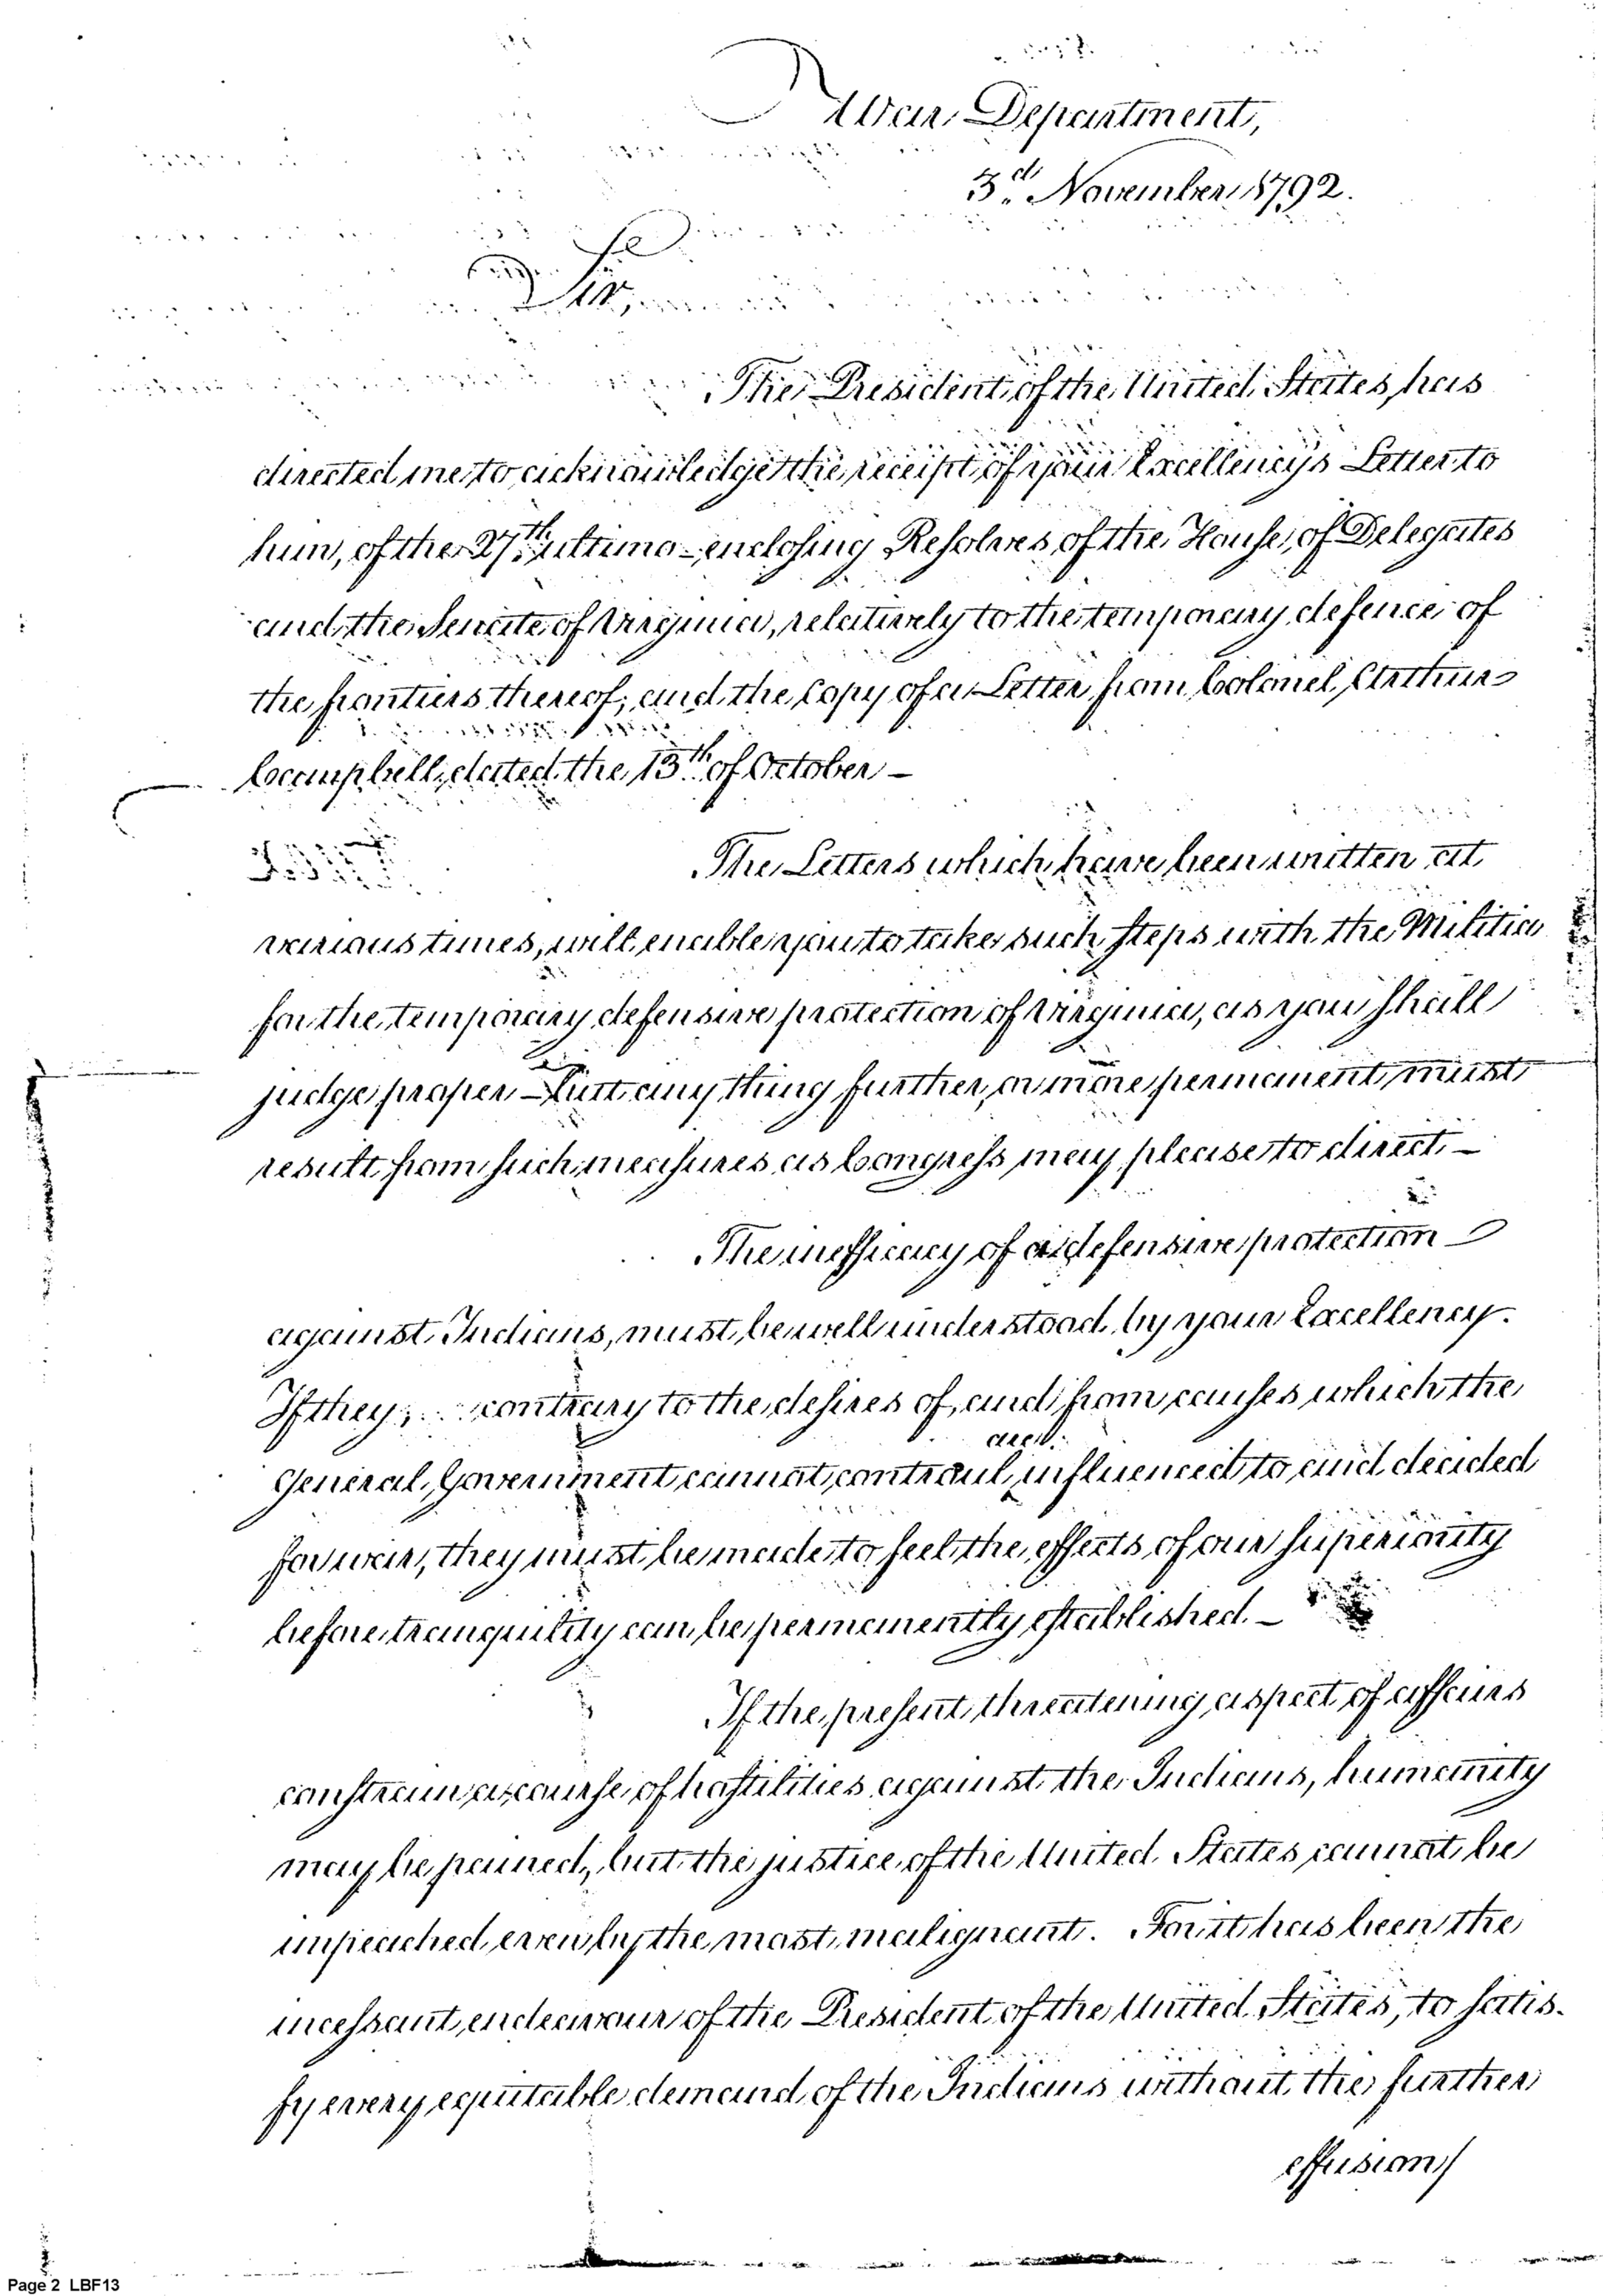 War Department,
3d. November 1792.
Sir,
The President of the United States, has
directed me to acknowledge the receipt of your Excellency's Letter to
him, of the 27th. ultimo – enclosing Resolves of the House of Delegates
and the Senate of Virginia, relatively to the temporary defence of
the frontiers thereof; and the Copy of a Letter from Colonel Arthur
Campbell, dated the 13th. of October –
The Letters which have been written at
various times, will enable you to take such steps with the Militia
for the temporary defensive protection of Virginia, as you shall
judge proper – but any thing further, or more permanent, must
result from such measures as Congress may please to direct. –
The inefficacy of a defensive protection
against Indians, must be well understood by your Excellency.
If they, contrary to the desires of, and from causes which the
are
General Government cannot controul, influenced to and decided
for war, they must be made to feel the effects of our superiority
before tranquility can be permanently established. –
If the present threatening aspect of affairs
constrain a course of hostilities against the Indians, humanity
may be pained, but the justice of the United States cannot be
impeached even by the most malignant. For it has been the
incessant endeavour of the President of the United States, to satis-
fy every equitable demand of the Indians without the further
effusion/
Page 2 LBF13